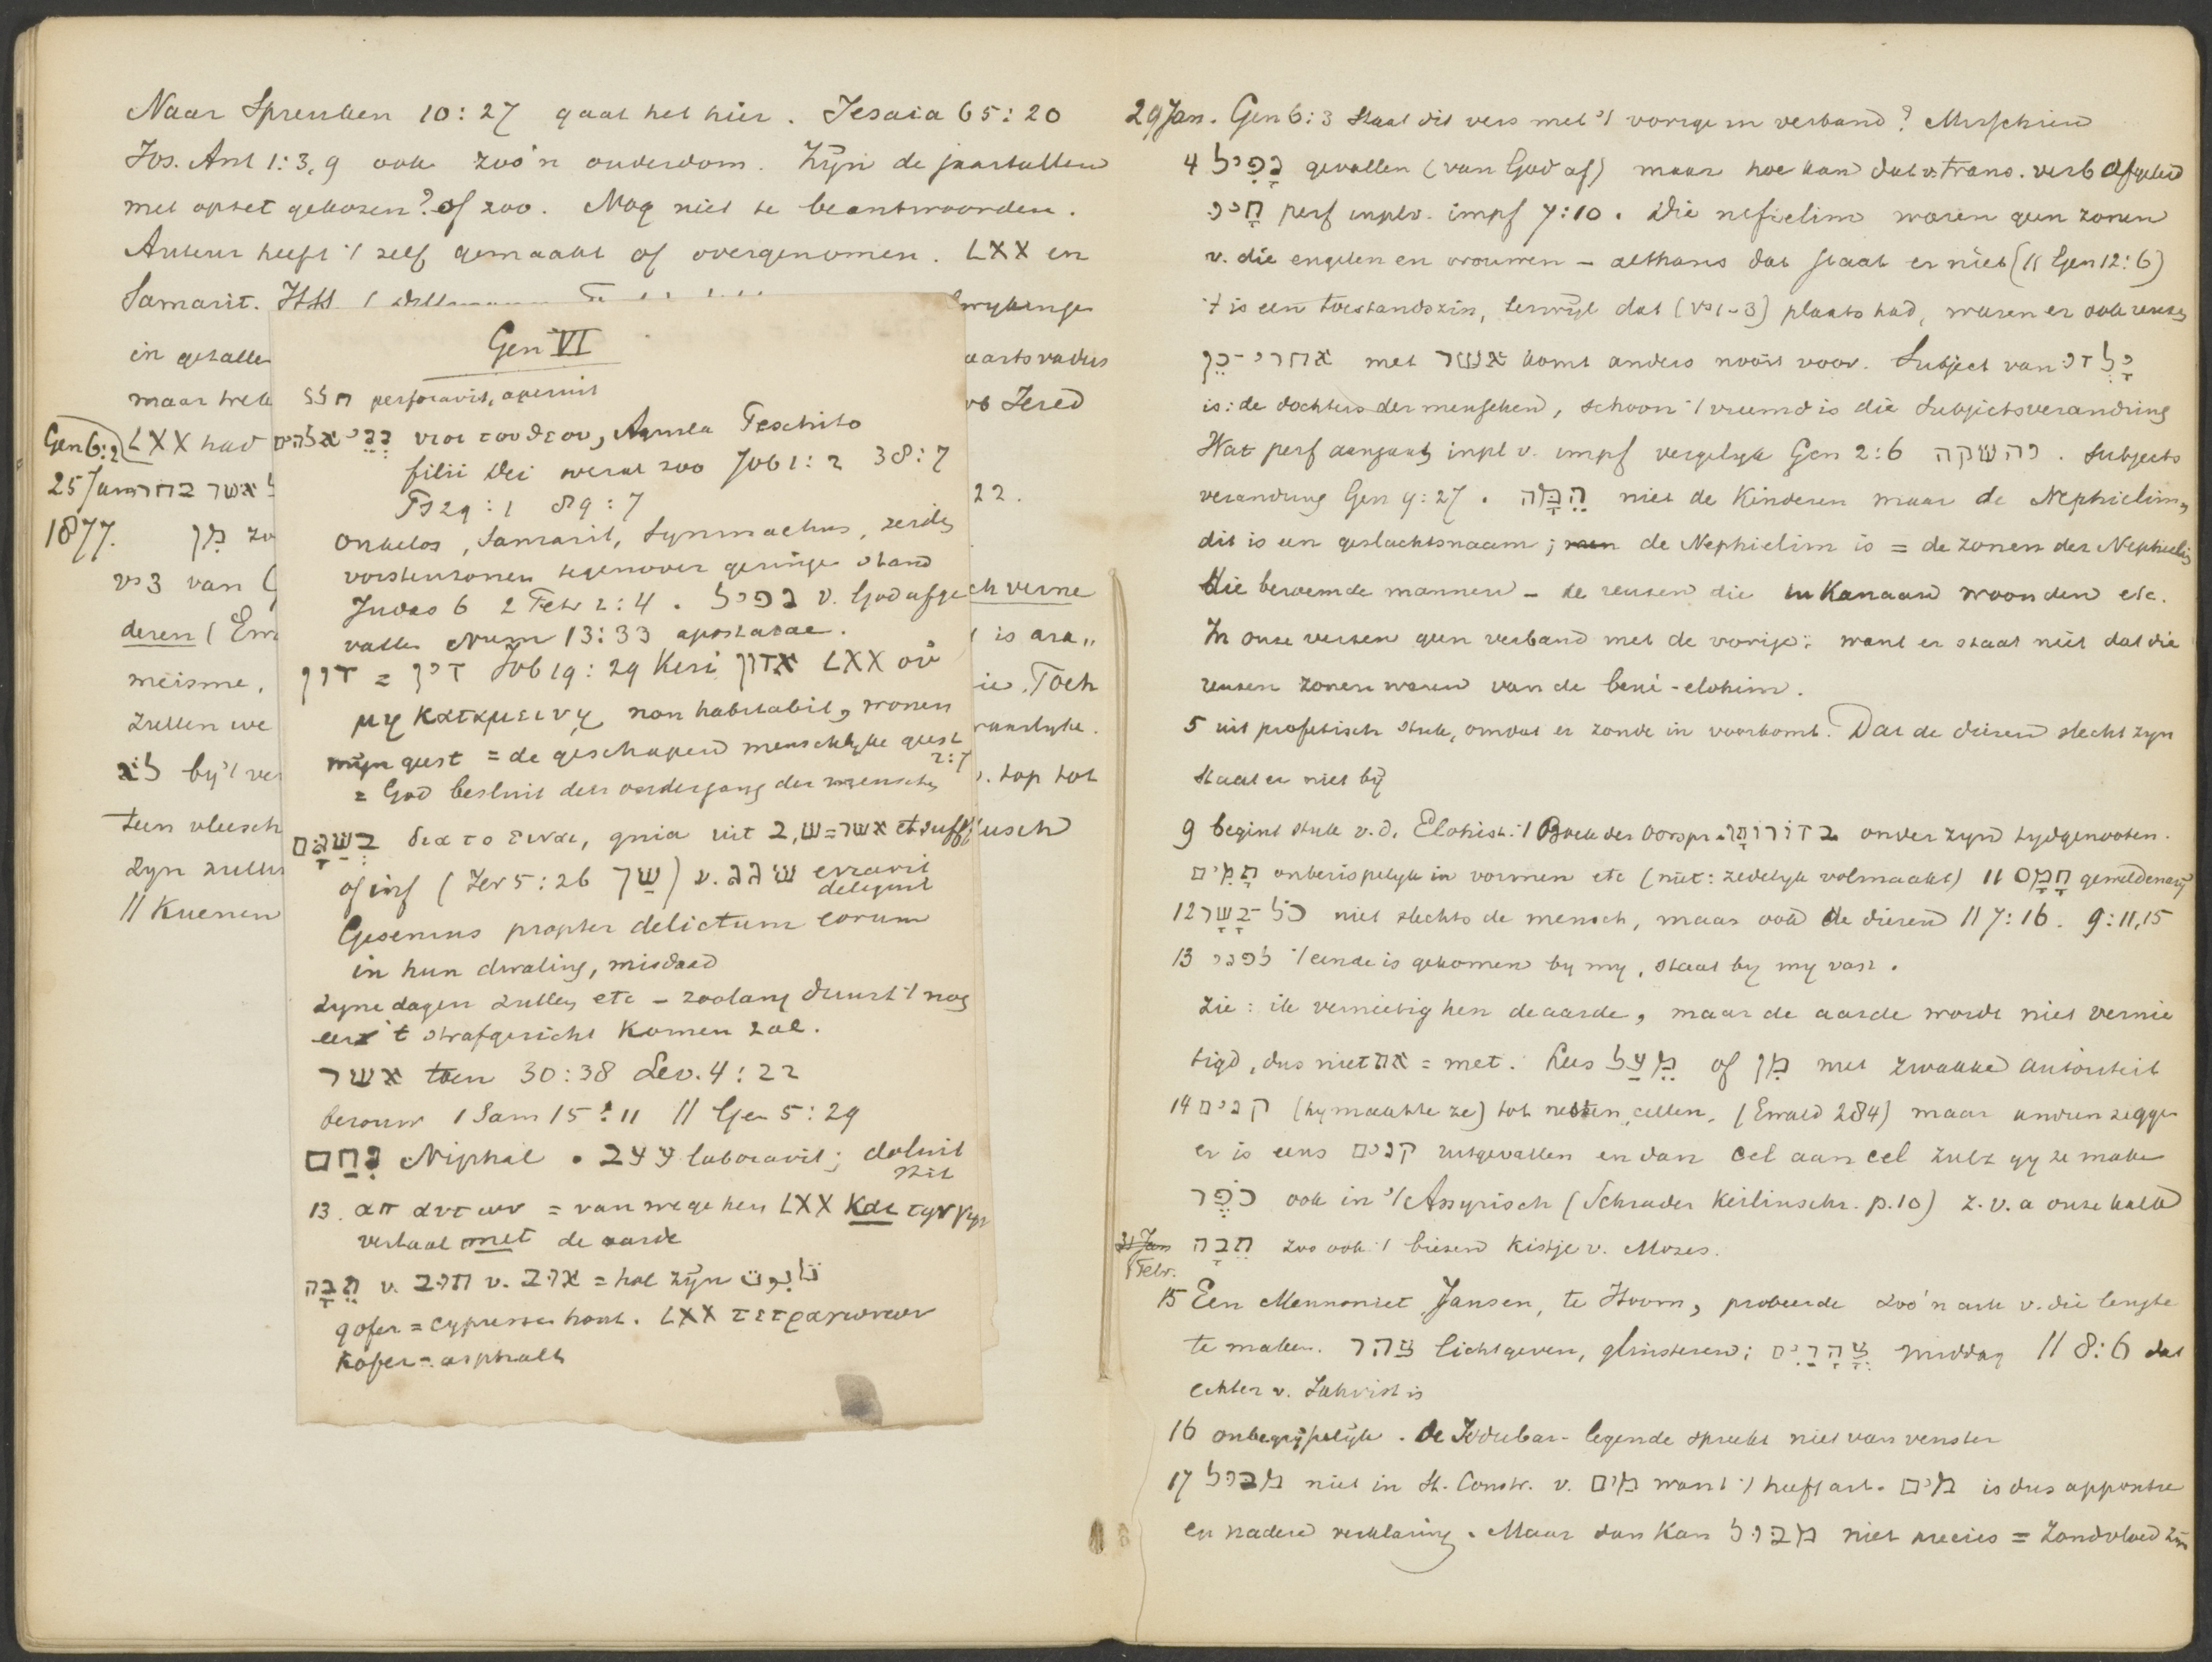 Naar Spreuken 10:27 gaat het hier. Jesaia 65:20
Jos. Ant 1:3,9 ook zoo'n ouderdom. Zijn de jaartallen
met opset gekozen? of zoo. Mag niet te beantwoorden.
Auteur heeft 't zelf gemaakt of overgenomen. LXX en
Samarit.
wykinge
in getalle
aartsvaders
maar trek
vb Jered
Gen 6:2 LXX had
25 Jan אשר בחרו
22.
1877. מן zo
vs 3 van
ch verne
deren (Ew
is ara„
meisme,
ie. Toch
zullen we
by 't ver
. top tot
teen vleesch
usch
zyn zullen
// Kuenen
Gen VI
חלל perforavit, aperuit
בְּנֵי אלהים υιοι του θεου, Aquila Peschito
filii Dei werat zoo Job 1:2 38:7
Ps 29:1 89:7
Onkelos, Samarit, Symmachus, zeiden
vorstenzonen tegenover geringe stand
Judas 6 2 Petr 2:4. נפיל v. God afge
vallen Num 13:33 apostatae.
דון = דין Job 19:29 Keri אדון LXX οὐ
μη καταμεινῃ non habitabit, wonen
mijn geest = de geschapen menschelyke geest 2:7
= God besluit den ondergang der menschen
בְּשַׁגָּם δια το ειναι, quia uit ב, ש=אשר et suff
of inf (Jer 5:26 שַׁךְ) v. שגג erravit deliquit
Gesenius propter delictum eorum
in hun dwaling, misdaad
zyne dagen zullen etc – zoolang duurt 't nog
eer 't strafgericht komen zal.
אשר toen 30:38 Lev. 4:22
berouw 1 Sam 15:11 // Gen 5:29
נִחַם Niphal . עצב laboravit; doluit
13. απ αυτων = van wege hen LXX και την γην
vertaal met de aarde
תֵּבָה v. תוב v. אוב = hol zijn تابوت
gofer = cypressenhout. LXX τετραγωνων
kofer = asphalt
29 Jan. Gen 6:3 Staat dit vers met 't vorige in verband? Misschien
4 נָפִיל gevallen (van God af) maar hoe kan dat v. trans. verb afgeleid
הָיוּ perf inplv. impf 7:10. Die nefielim waren geen zonen
v. die engelen en vrouwen – althans dat staat er niet (// Gen 12:6)
't is een toestandszin, terwijl dat (vs 1-3) plaats had, waren er ook reuzen
אחרי־כֵן met אשר komt anders nooit voor. Subject van יָלְדוּ
is: de dochters der menschen, schoon 't vreemd is die subjectsverandring
Wat perf aangaat inpl v. impf vergelyk Gen 2:6 והשקה. Subjects
verandring Gen 9:27. הֵמָּה niet de Kinderen maar de Nephielim,
dit is een geslachtsnaam; de Nephielim is = de zonen der Nephielim
die beroemde mannen – de reuzen die in Kanaan woonden etc.
In onze verzen geen verband met de vorige: want er staat niet dat die
reuzen zonen waren van de bené-elohim.
5 uit profetisch stuk, omdat er zonde in voorkomt. Dat de dieren slecht zyn
staat er niet bij
9 begint stuk v.d. Elohist: 't Boek der Oorspr. בדורותיו onder zyn tydgenooten.
תָּמִים onberispelyk in vormen etc (niet: zedelyk volmaakt) // חָמָס gewelddenarij
12 כל־בָּשָׂר niet slechts de mensch, maar ook de dieren // 7:16. 9:11,15
13 לפני 't einde is gekomen by my, staat by my vast.
Zie: ik vernietig hen de aarde, maar de aarde wordt niet vernie
tigd, dus niet את = met. Lees מֵעַל of מִן met zwakke autoriteit
14 קנים (hy maakte ze) tot nesten, cellen, (Ewald 284) maar andren zeggen
er is eens קנים uitgevallen en dan cel aan cel zult gy ze maken
כֹּפֶר ook in 't Assyrisch (Schrader Keilinschr. p.10) z.v.a onze kalk
31 Jan
1 Febr.
תֵּבָה zoo ook 't biezen kistje v. Mozes.
15 Een Mennoniet Jansen, te Hoorn, probeerde zoo'n ark v. die lengte
te maken. צהר lichtgeven, glinsteren; צָהֳרַיִם middag // 8:6 dat
echter v. Jahvist is
16 onbegrijpelijk. De Izdubar-legende spreekt niet van venster
17 מבול niet in St. Constr. v. מים want 't heeft art. מים is dus appositie
en nadere verklaring. Maar dan kan מבול niet precies = Zondvloed zijn